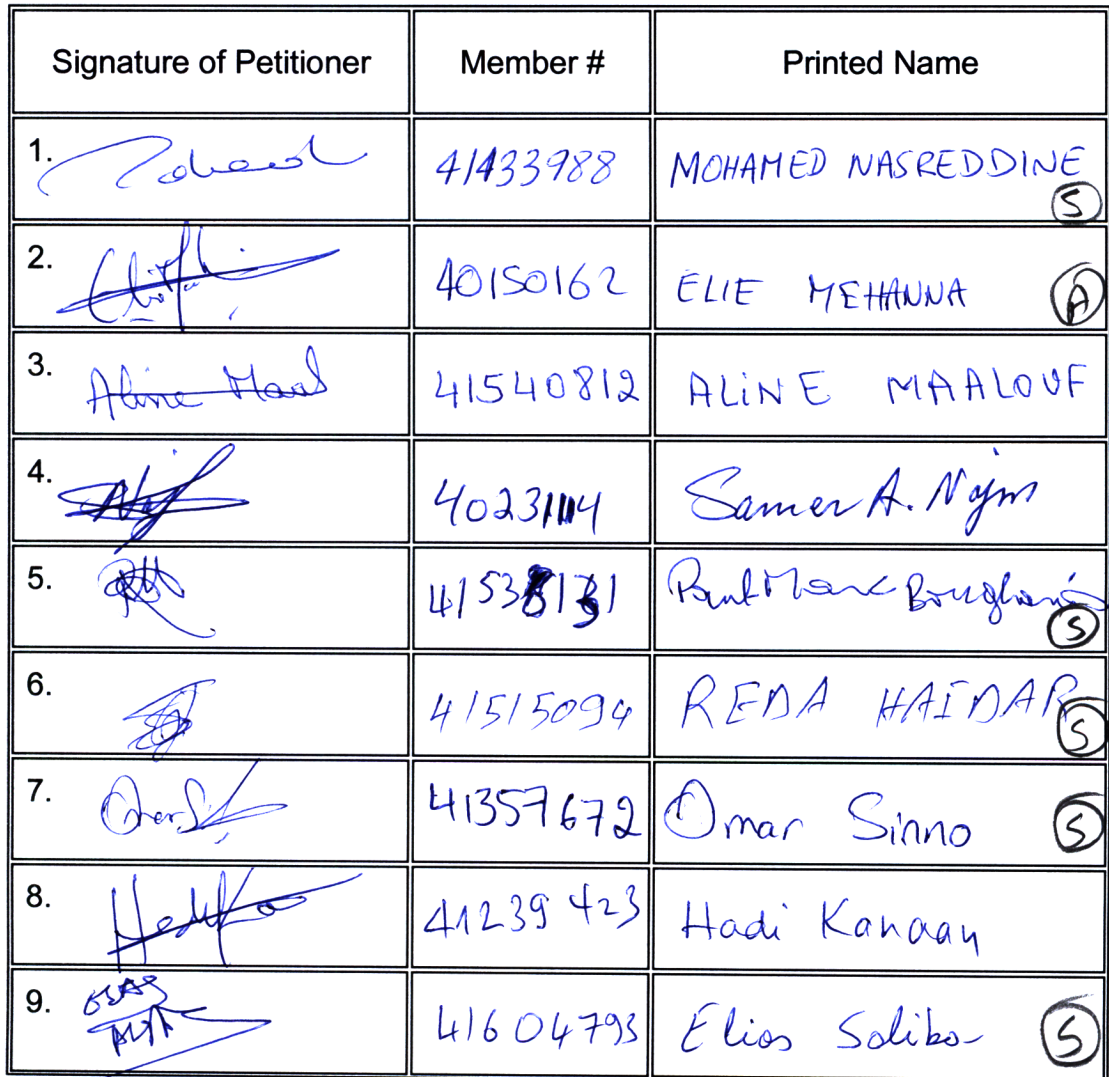 Signature of Petitioner Member # Printed Name
1. 41433988 MOHAMED NASREDDINE
S
2. 40150162 ELIE MEHANNA A
3. Aline Maal 41540812 ALINE MAALOUF
4. 40231114 Samer A. Najm
5. Paul Marc
S
6. 41515094 REDA HAIDAR
S
7. Omar 41357672 Omar Sinno S
8. 41239423 Hadi Kanaan
9. 41604793 Elias Saliba S